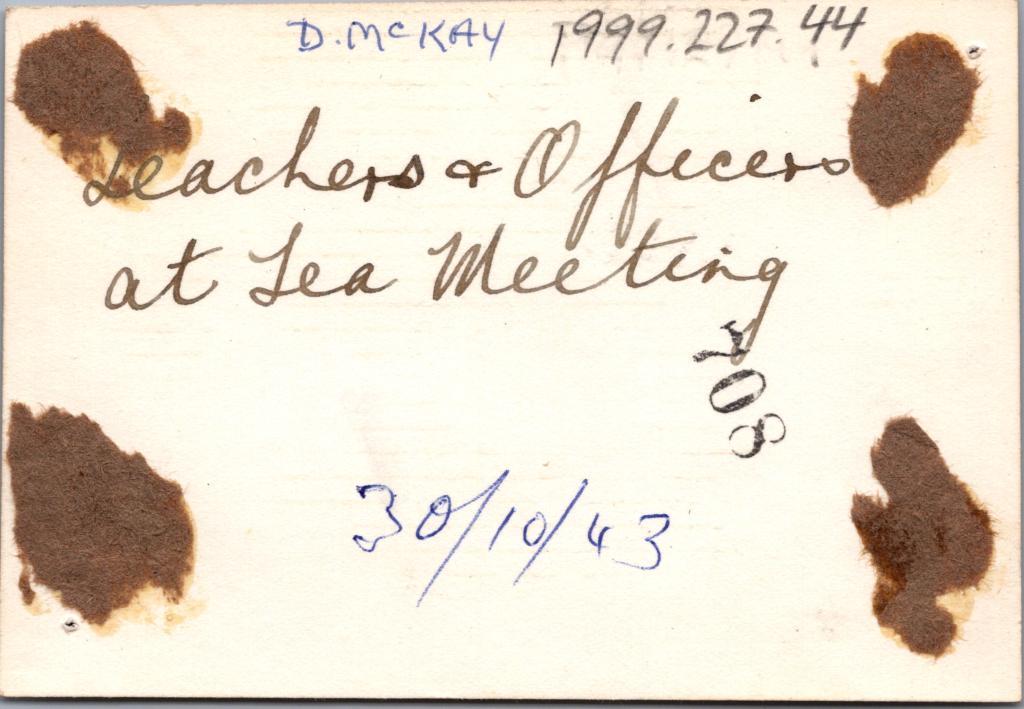 D. McKAY 1999.227.44
Teachers & Officers
at Tea Meeting
708
30/10/43